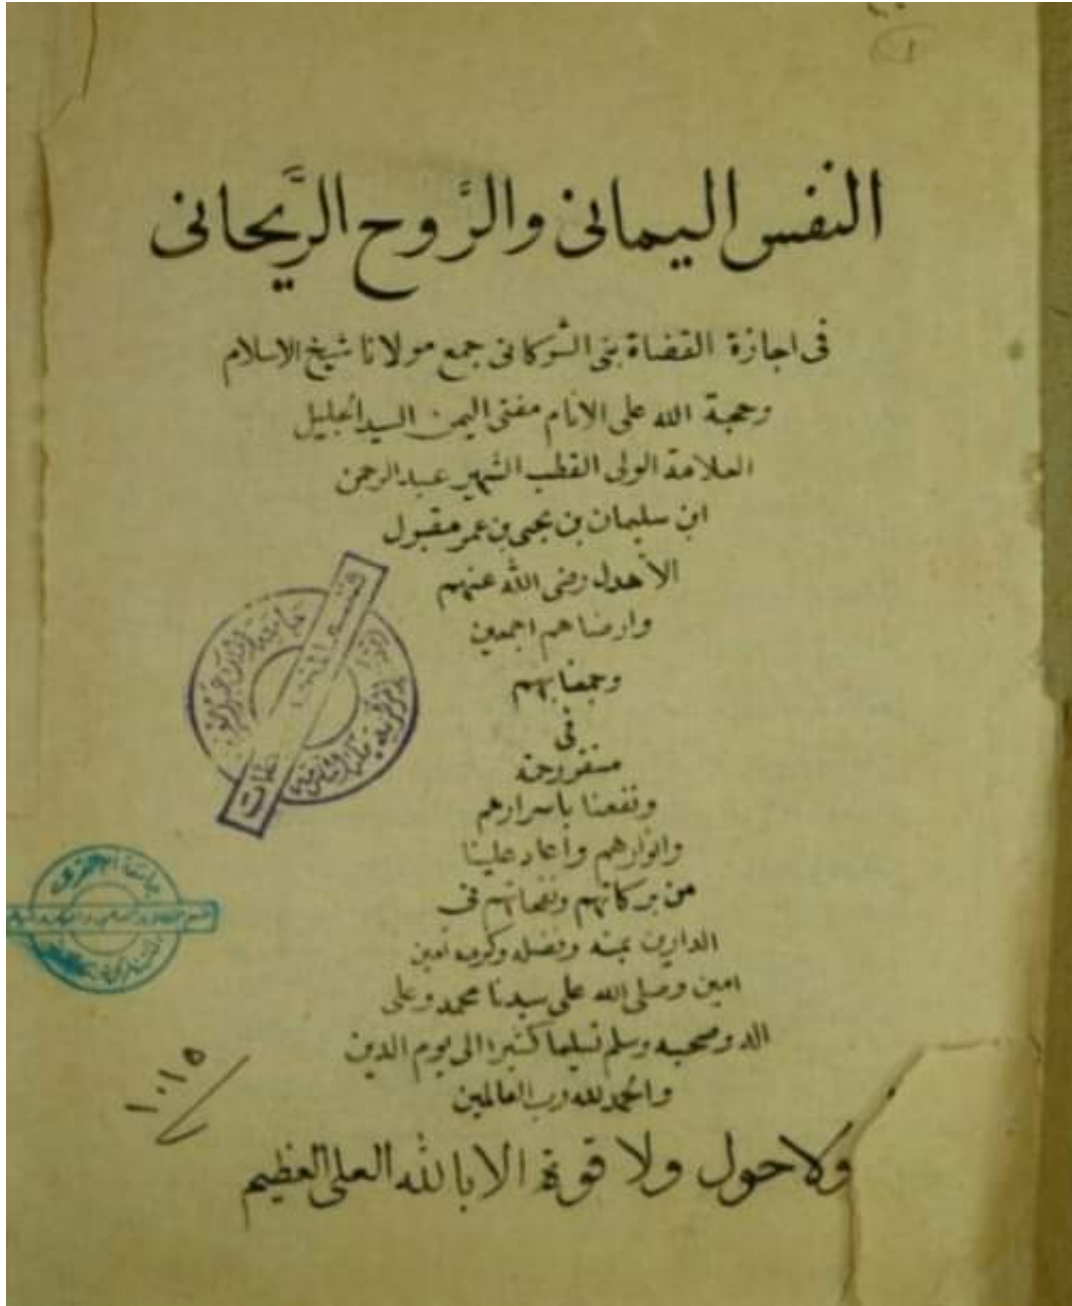 ١
النفس اليمانى والرَّوح الرَّيحانى
فى اجازة القضاة بنى الشوكانى جمع مولانا شيخ الاسلام
وحجة الله على الانام مفتى اليمن السيد الجليل
العلامة الولى القطب الشهير عبدالرحمن
ابن سليمان بن يحيى بن عمر مقبول
الأهدل رضى الله عنهم
وارضاهم اجمعين
وجمعنا بهم
فى
مستقر رحمته
ونفعنا باسرارهم
وانوارهم وأعاد علينا
من بركاتهم ونفحاتهم فى
الدارين بمنه وفضله وكرمه آمين
امين وصلى الله على سيدنا محمد وعلى
اله وصحبه وسلم تسليما كثيرا الى يوم الدين
والحمد لله رب العالمين
ولا حول ولا قوة الا بالله العلى العظيم
قسم
جامعة
١٠١٥